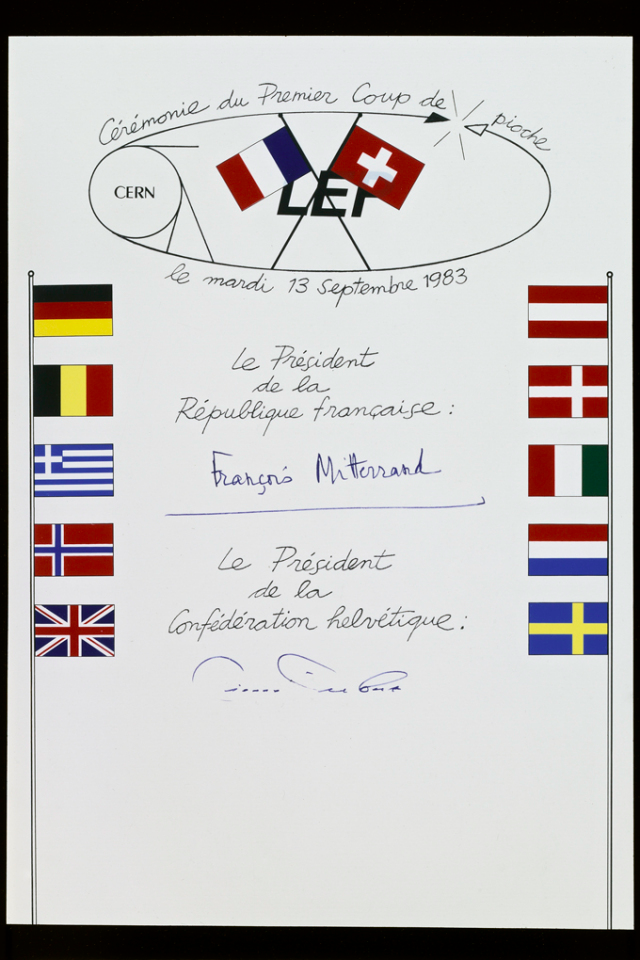 Cérémonie du Premier Coup de pioche
CERN
LEP
le mardi 13 septembre 1983
Le Président
de la
République française :
François Mitterrand
Le Président
de la
Confédération helvétique :